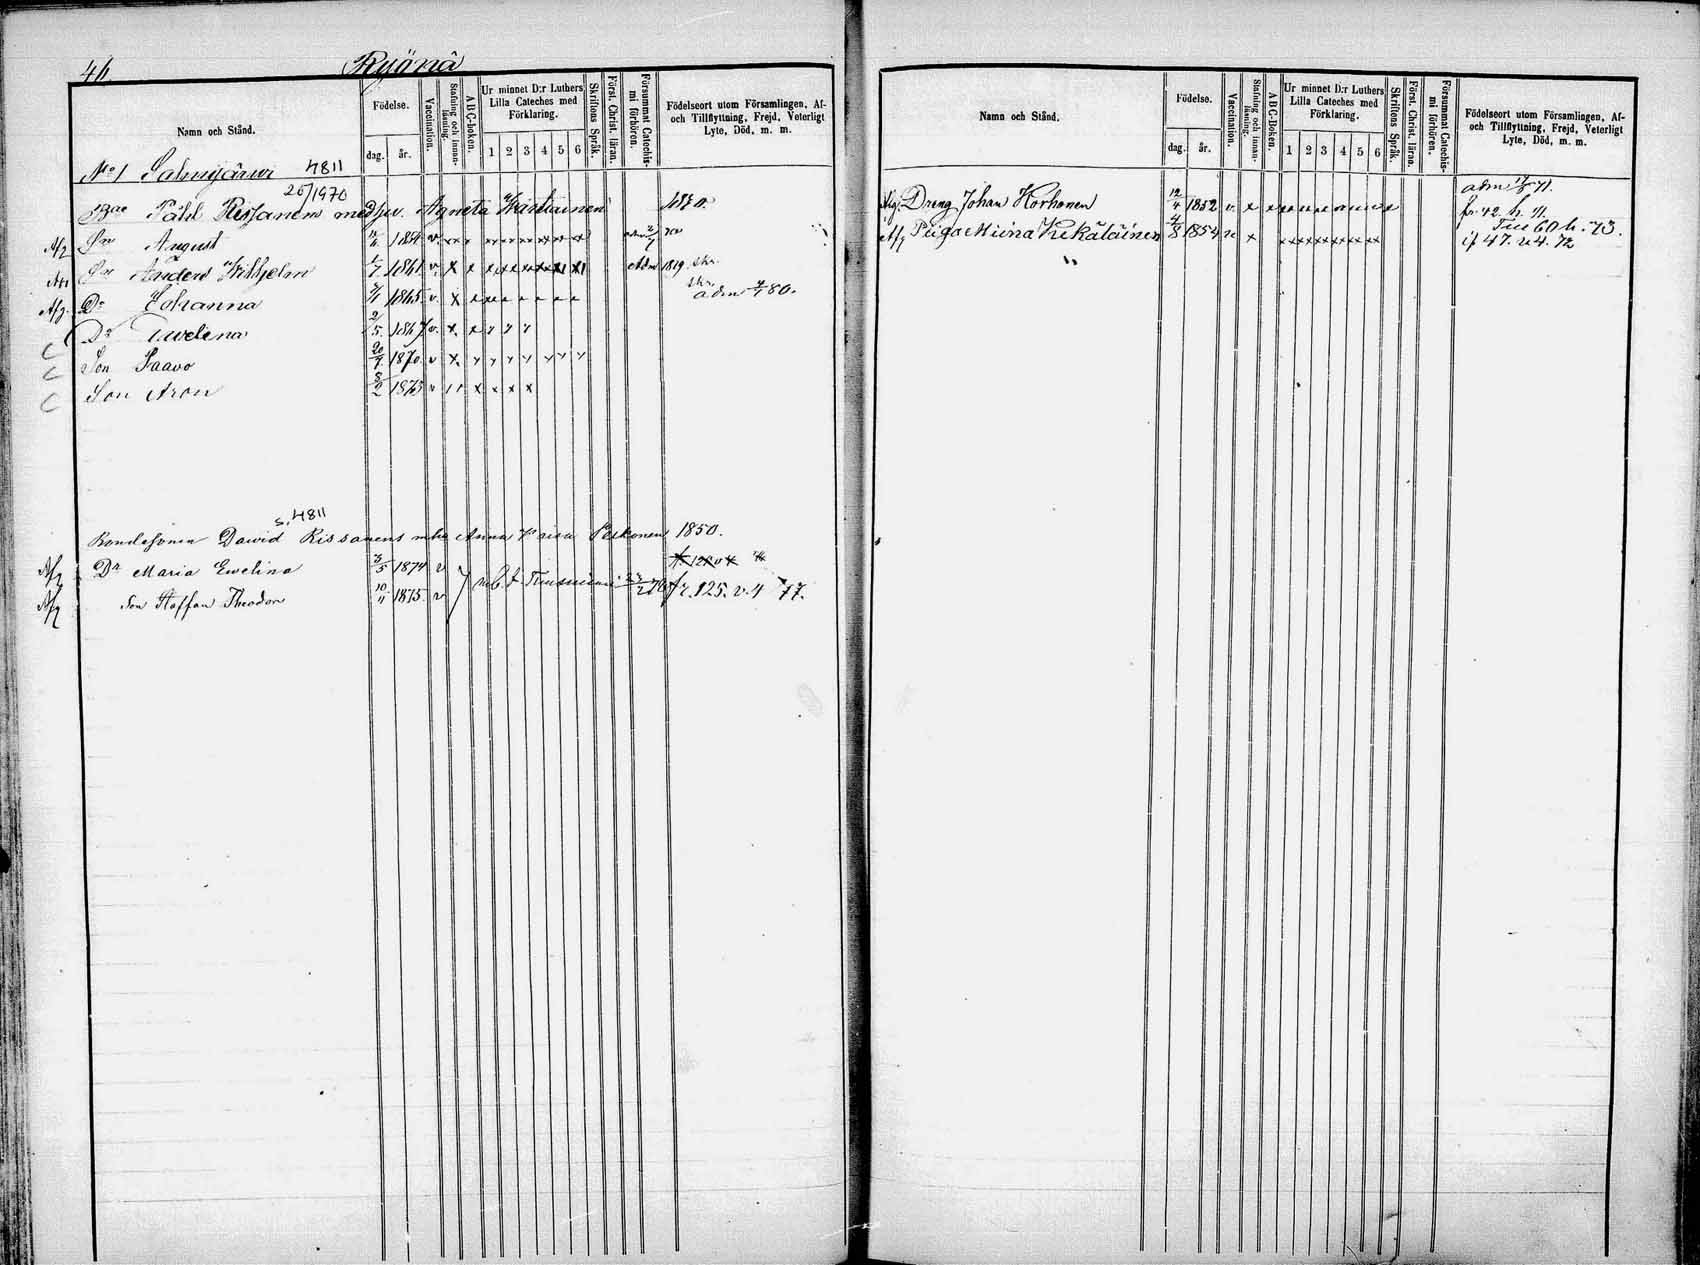 46 Ryönä
Namn och Stånd.
Födelse.
dag. år.
Vaccination.
Stafning och innan-läsning.
ABC-boken.
Ur minnet D:r Luthers Lilla Cateches med Förklaring.
1 2 3 4 5 6
Skriftens Språk.
Först. Christ. läran.
Försummat Catechis-mi förhören.
Födelseort utom Församlingen, Af-
och Tillflyttning, Frejd, Veterligt
Lyte, Död, m. m.
No 1 Salmijärwi 4811
26/1970
Påhl Rissanens med hu. Agneta
Afg Sn August 1854 v.
Sn Anders Wilhelm 1/7 1861 v. Adm 1819. skr.
Afg. Dr Johanna 1865 v. skr. adm 80.
Dr Ewelina 2/5 1867 v.
Son Paavo 20/9 1870 v
Son Aron 8/2 1873 v
s. 4811
Bondesonen Dawid Rissanens Anna Kaisa Peskonen 1850.
Afg Dr Maria Ewelina 3/5 1874 v
Afg Son Staffan Theodor 10/11 1875 v fr. 125. v. 4 77.
Namn och Stånd.
Födelse.
dag. år.
Vaccination.
Stafning och innan-läsning.
ABC-Boken.
Ur minnet D:r Luthers Lilla Cateches med Förklaring.
1 2 3 4 5 6
Skriftens Språk.
Först. Christ. läran.
Försummat Catechis-mi förhören.
Födelseort utom Församlingen, Af-
och Tillflyttning, Frejd, Veterligt
Lyte, Död, m. m.
adm 71.
Afg. Dreng Johan Korhonen 12/4 1852 v. fr 42. h. 71.
Till 60 h. 73.
Afg Piga Miina Kekäläinen 4/8 1854 v if 47. v 4. 72